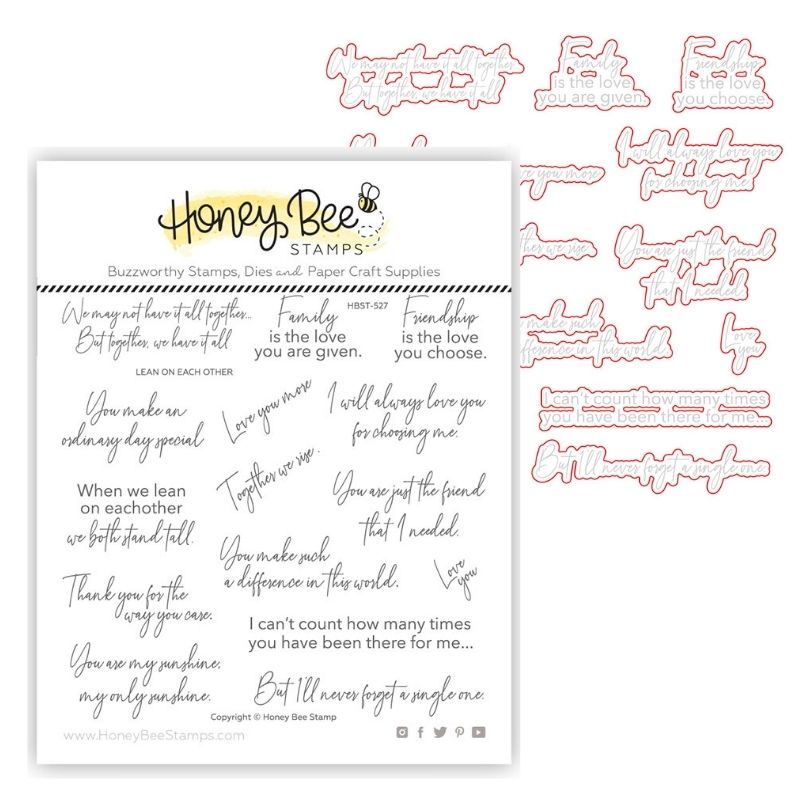 We may not have it all together
But together, we have it all
Family
is the love
you are given.
Friendship
is the love
you choose.
ve you more
I will always love you
for choosing me.
ther we rise
You are just the friend
that I needed.
make such
difference in this world.
Love
you
I can't count how many times
you have been there for me...
But I'll never forget a single one.
Honey Bee
STAMPS
Buzzworthy Stamps, Dies and Paper Craft Supplies
We may not have it all together...
But together, we have it all
LEAN ON EACH OTHER
Family
is the love
you are given.
HBST-527
Friendship
is the love
you choose.
You make an
ordinary day special
Love you more
I will always love you
for choosing me.
When we lean
on eachother
we both stand tall.
Together we rise.
You are just the friend
that I needed.
You make such
a difference in this world.
Love
you
Thank you for the
way you care.
I can't count how many times
you have been there for me...
You are my sunshine,
my only sunshine.
But I'll never forget a single one.
Copyright © Honey Bee Stamp
www.HoneyBeeStamps.com